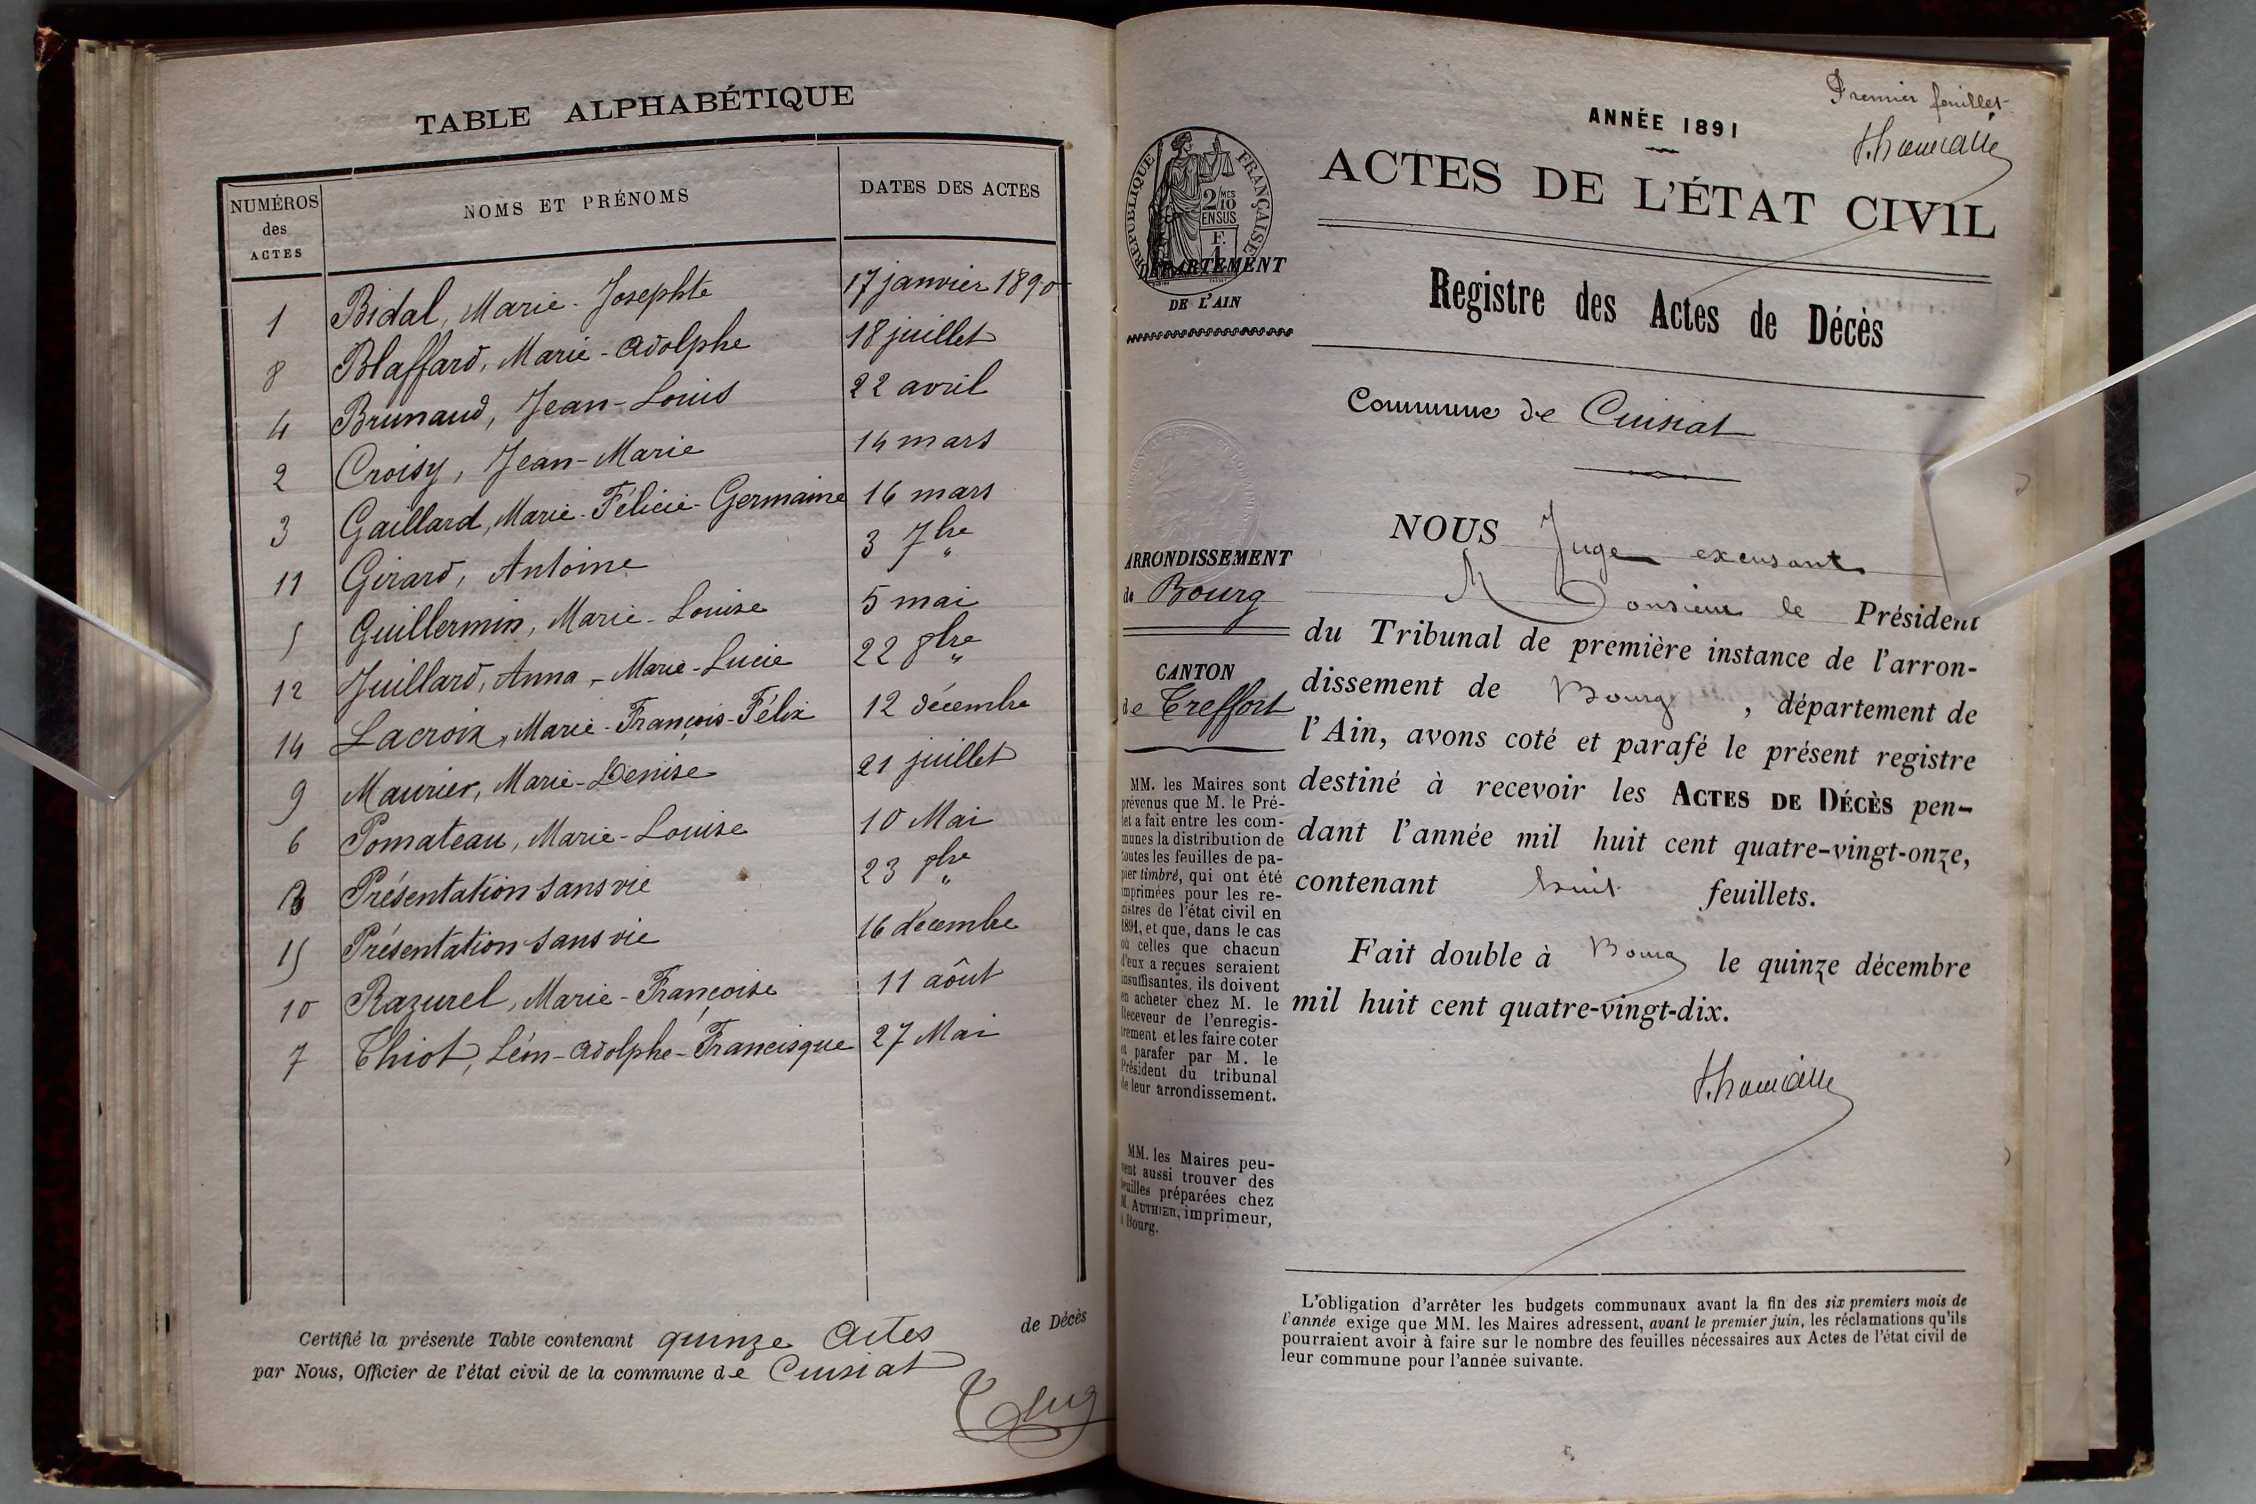 TABLE ALPHABÉTIQUE
NUMÉROS des ACTES NOMS ET PRÉNOMS DATES DES ACTES
1 Bidal, Marie-Josephte 17 janvier 1890
8 Blaffard, Marie-Adolphe 18 juillet
4 Brunaud, Jean-Louis 22 avril
2 Croisy, Jean-Marie 14 mars
3 Gaillard, Marie-Félicie-Germaine 16 mars
11 Girard, Antoine 3 7bre "
5 Guillermin, Marie-Louise 5 mai
12 Juillard, Anna-Marie-Lucie 22 8bre "
14 Lacroix, Marie-François-Félix 12 décembre
9 Maurier, Marie-Denise 21 juillet
6 Pomateau, Marie-Louise 10 Mai
13 Présentation sans vie 23 8bre "
15 Présentation sans vie 16 décembre
10 Razurel, Marie-Françoise 11 aôut
7 Thiot, Léon-Adolphe-Francisque 27 Mai
Certifié la présente Table contenant quinze actes de Décès
par Nous, Officier de l'état civil de la commune de Cuisiat
Premier feuillet
ANNÉE 1891
ACTES DE L'ÉTAT CIVIL
RÉPUBLIQUE FRANÇAISE
2/10 MES
EN SUS
F.
1
DÉPARTEMENT
DE L'AIN
Registre des Actes de Décès
Commune de Cuisiat
ARRONDISSEMENT
de Bourg
CANTON
de Treffort
MM. les Maires sont
prévenus que M. le Pré-
fet a fait entre les com-
munes la distribution de
toutes les feuilles de pa-
pier timbré, qui ont été
imprimées pour les re-
gistres de l'état civil en
1891, et que, dans le cas
où celles que chacun
d'eux a reçues seraient
insuffisantes, ils doivent
en acheter chez M. le
Receveur de l'enregis-
trement et les faire coter
et parafer par M. le
Président du tribunal
de leur arrondissement.
MM. les Maires peu-
vent aussi trouver des
feuilles préparées chez
M. AUTHIER, imprimeur,
à Bourg.
NOUS Juge excusant
Monsieur le Président
du Tribunal de première instance de l'arron-
dissement de Bourg, département de
l'Ain, avons coté et parafé le présent registre
destiné à recevoir les ACTES DE DÉCÈS pen-
dant l'année mil huit cent quatre-vingt-onze,
contenant huit feuillets.
Fait double à Bourg le quinze décembre
mil huit cent quatre-vingt-dix.
L'obligation d'arrêter les budgets communaux avant la fin des six premiers mois de
l'année exige que MM. les Maires adressent, avant le premier juin, les réclamations qu'ils
pourraient avoir à faire sur le nombre des feuilles nécessaires aux Actes de l'état civil de
leur commune pour l'année suivante.